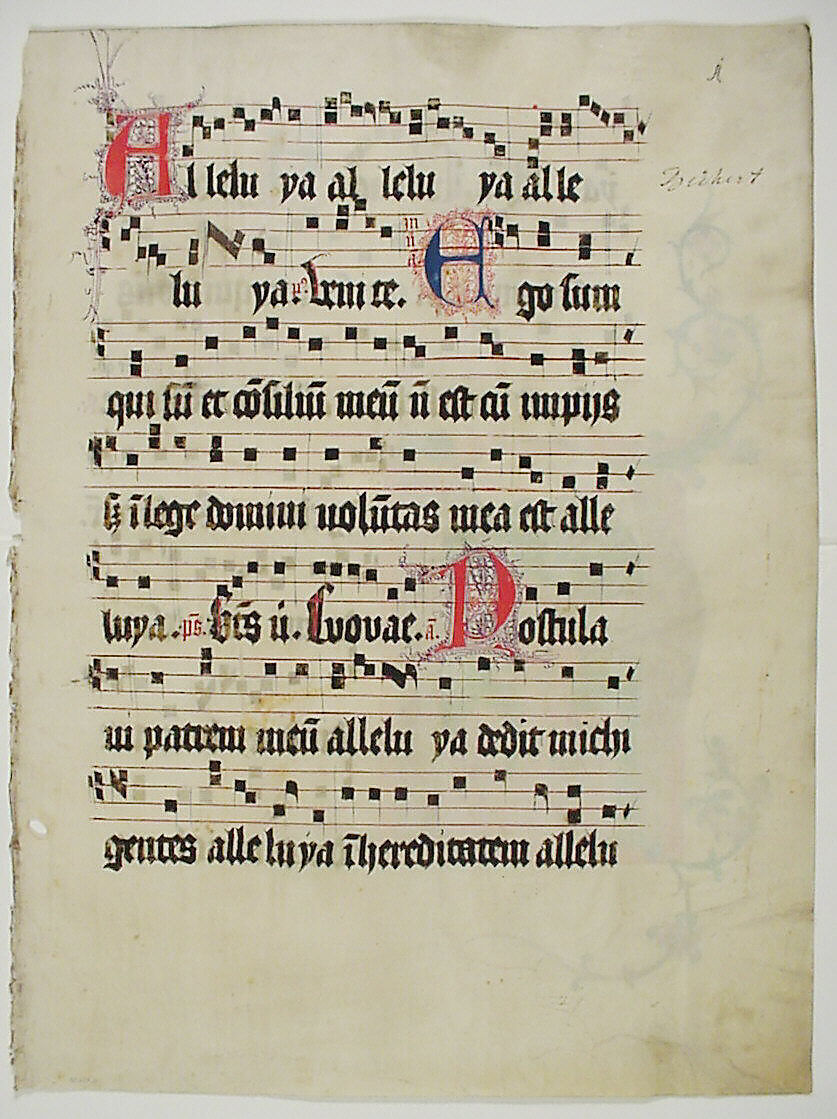 Al lelu ya al lelu ya alle
lu ya. p̄s. Venite. Ego sum
qui sū et cōsiliū meū n̄ est cū impijs
sz ī lege domini volūtas mea est alle
luya. p̄s. Bt̄s ū. Evovae. ā. Postula
ui patrem meū allelu ya dedit michi
gentes alle lu ya ī hereditatem allelu